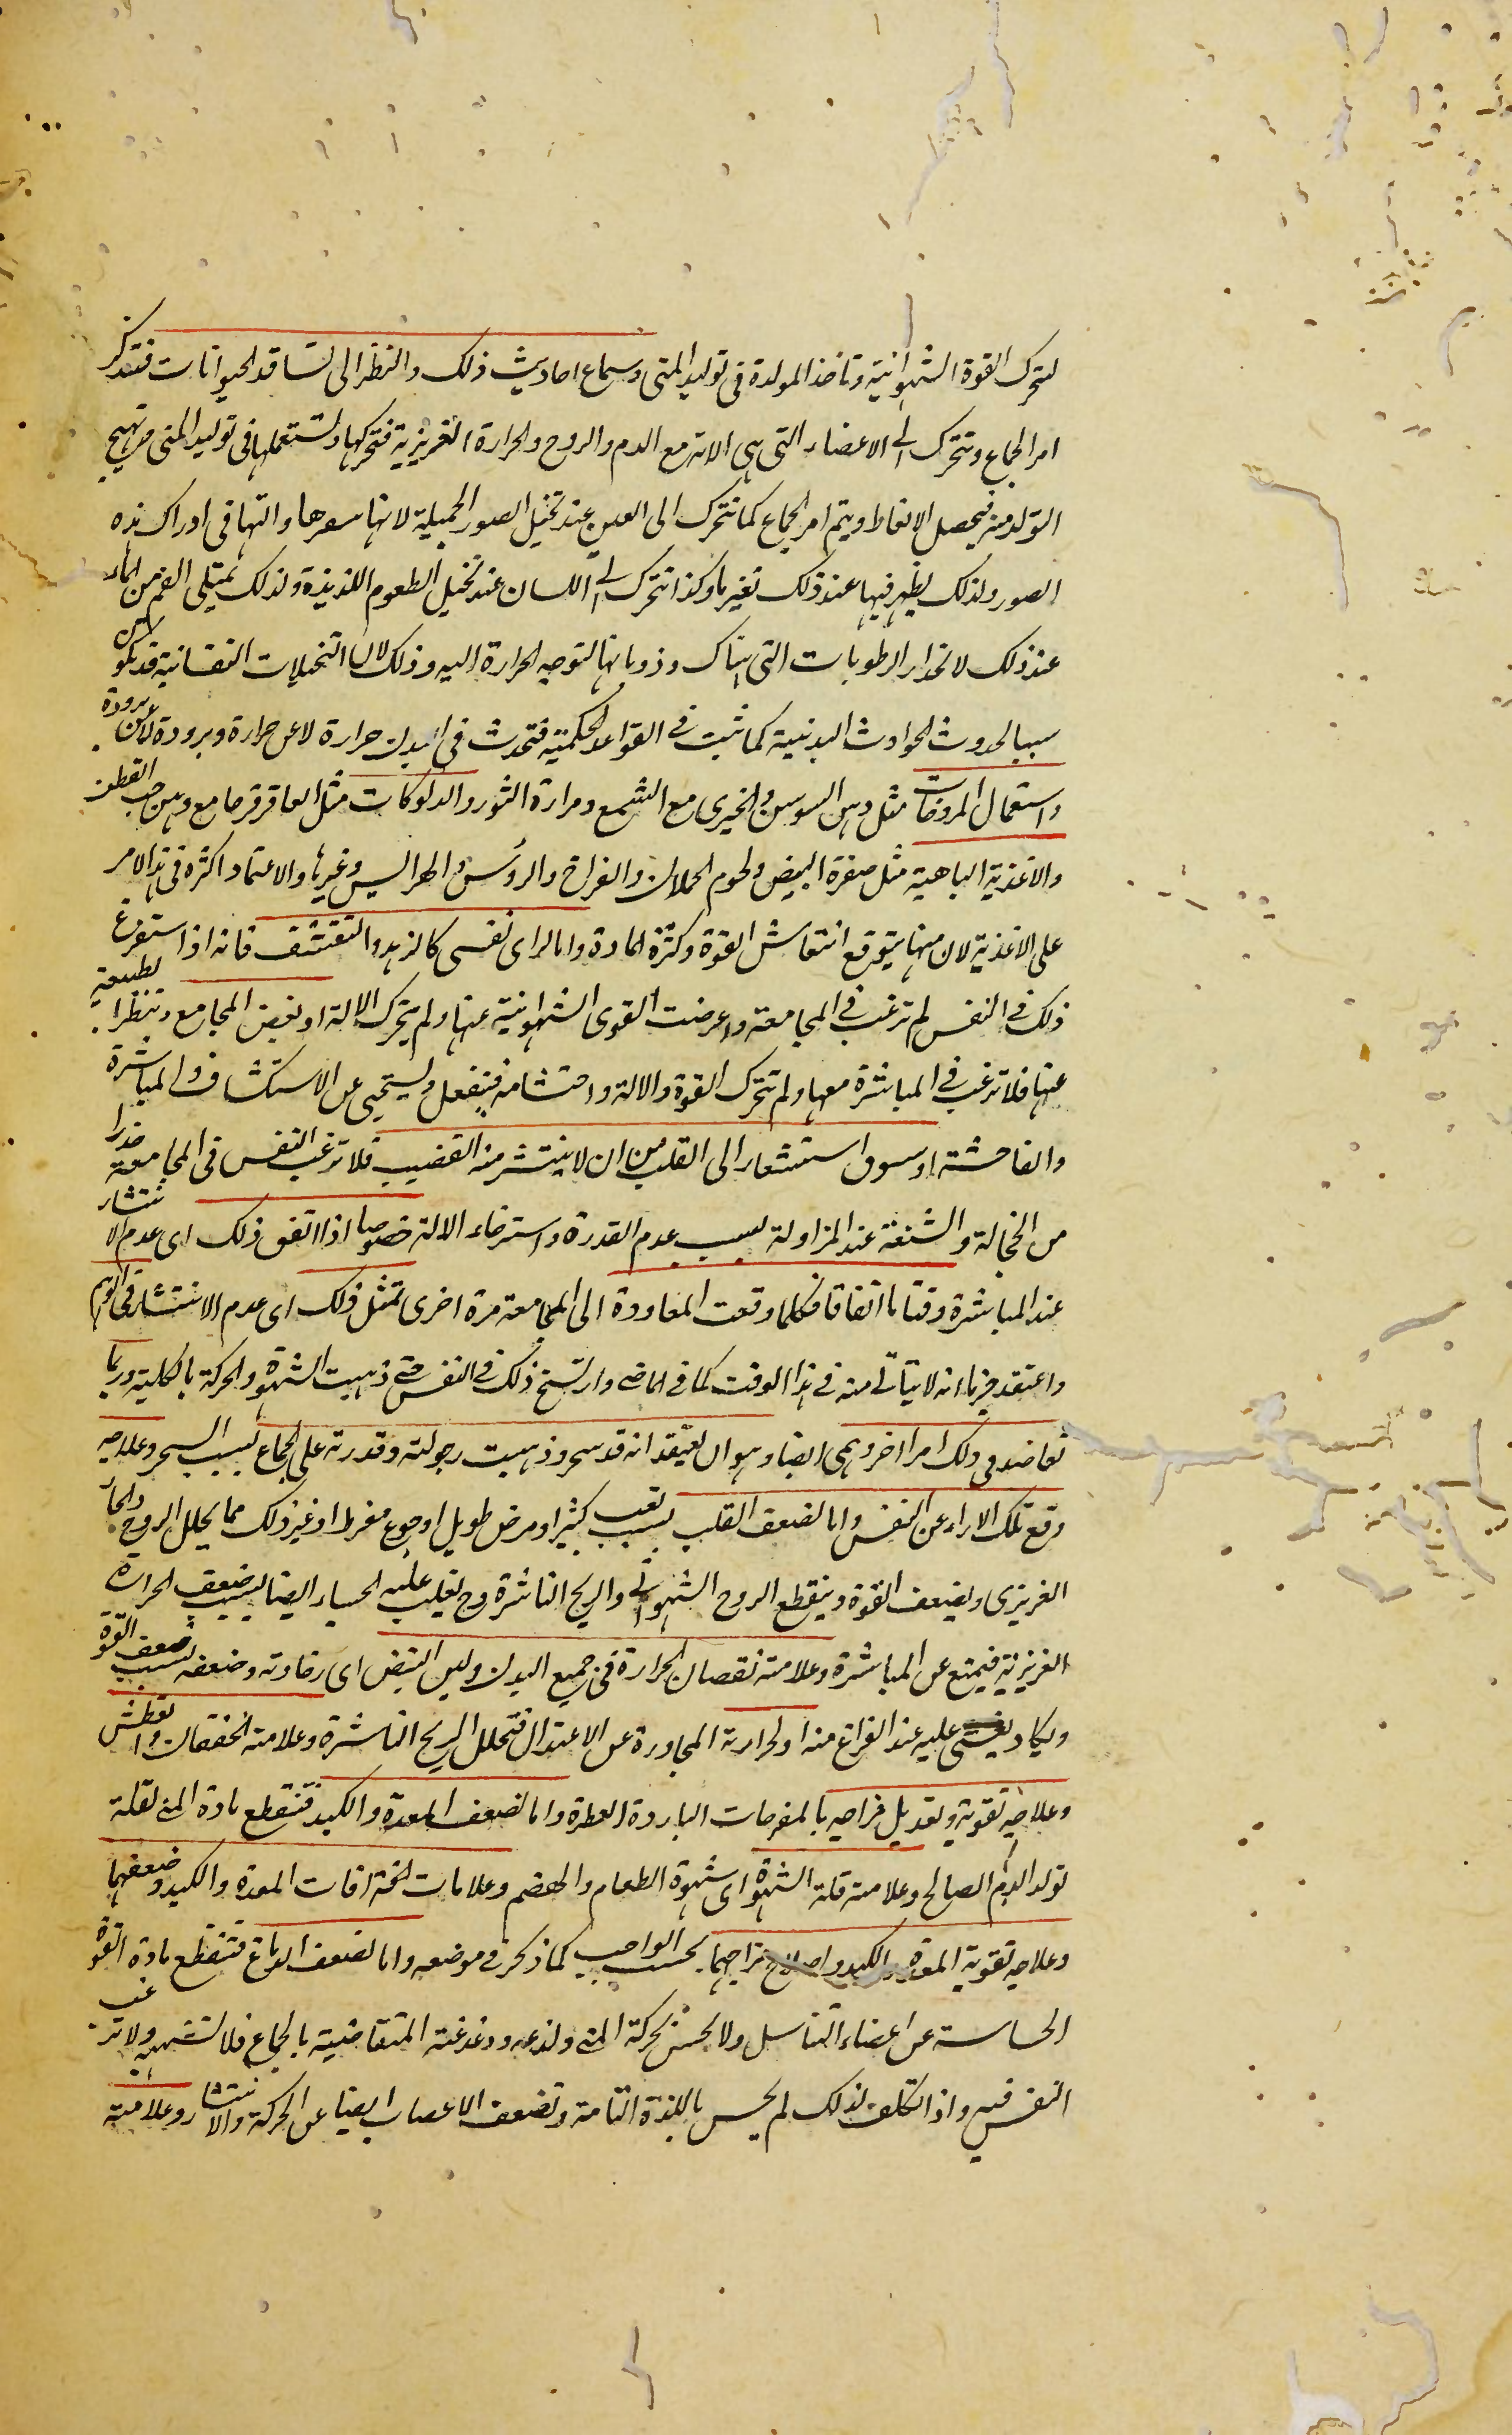 لتحرك القوة الشهوانية وتاخذ المولدة فى توليد المنى وسماع احاديث ذلك والنظر الى تسافد الحيوانات فتتذكر
امر الجماع وتتحرك الى الاعضاء التى هى الاته مع الدم والروح والحرارة الغريزية فتحركها وتستعملها فى توليد المنى من تهيج
التولد منه فيحصل الانعاظ ويتم امر الجماع كما تتحرك الى العين عند تخيل الصور الجميلة لانها والتها فى ادراك هذه
الصور ولذلك يظهر فيها عند ذلك تغير ما وكذا تتحرك الى اللسان عند تخيل الطعوم اللذيذة ولذلك يمتلى الفم من الماء
عند ذلك لانحدار الرطوبات التى هناك وذوبانها لتوجه الحرارة اليه وذلك لان التخيلات النفسانية قد تكون
سببا لحدوث الحوادث البدنية كما ثبت فى القواعد الحكمية فتحدث فى البدن حرارة لا عن حرارة وبرودة لا عن برودة
واستعمال المروخات مثل دهن السوسن والخيرى مع الشمع ومرارة الثور والدلوكات مثل العاقرقرحا مع دهن حب القطن
والاغذية الباهية مثل صفرة البيض ولحوم الحملان والفراخ والرؤس والهرائس وغيرها والاعتماد اكثره فى هذا الامر
على الاغذية لان منها يتوقع انتعاش القوة وكثرة المادة واما لراى نفسى كالزهد والتقشف فانه اذا استفرغ
ذلك فى النفس لم ترغب فى المجامعة واعرضت القوى الشهوانية عنها ولم يتحرك الالة او بغض المجامع وتنظر الطبيعة
عنها فلا ترغب فى المباشرة معها ولم تتحرك القوة والالة واحتشامه فينفعل ويستحيى عن الاستكشاف والمباشرة
والفاحشة او سبوق استشعار الى القلب من ان لا ينتشر منه القضيب فلا ترغب النفس فى المجامعة حذرا
من الخجالة والشنعة عند المزاولة بسبب عدم القدرة واسترخاء الالة خصوصا اذا اتفق ذلك اى عدم الانتشار
عند المباشرة وقتا ما اتفاقا فكلما وقعت المعاودة الى المجامعة مرة اخرى تمثل ذلك اى عدم الانتشار فى الوهم
واعتقد جزما انه لا يتأتى منه فى هذا الوقت كما فى الماضى وارتسخ ذلك فى النفس حتى ذهبت الشهوة والحركة بالكلية وربما
تعاضد فى ذلك امرا اخر وهمى ايضا وهو ان يعتقد انه قد سحر وذهبت رجولته وقدرته على الجماع بسبب السحر وعلاجه
رفع تلك الاراء عن النفس واما لضعف القلب بسبب تعب كثير او مرض طويل او جوع مفرط او غير ذلك مما يحلل الروح والحار
الغريزى ويضعف القوة وينقطع الروح الشهوانى والريح الناشرة وح يغلب عليه الحياء ايضا بسبب ضعف الحرارة
الغريزية فيمتنع عن المباشرة وعلامته نقصان الحرارة فى جميع البدن ولين النبض اى رخاوته وضعفه بسبب ضعف القوة
ويكاد يغشى عليه عند الفراغ منه او لحرارته المجاورة عن الاعتدال فتحلل الريح الناشرة وعلامته الخفقان والعطش
وعلاجه تقويته وتعديل مزاجه بالمفرحات الباردة العطرة واما لضعف المعدة والكبد فتنقطع مادة المنى لقلة
تولد الدم الصالح وعلامته قلة الشهوة اى شهوة الطعام والهضم وعلامات افات المعدة والكبد وضعفهما
وعلاجه تقوية المعدة والكبد واصلاح مزاجهما بحسب الواجب كما ذكر فى موضعه واما لضعف الدماغ فتنقطع مادة القوة
الحساسة عن اعضاء التناسل ولا تحس بحركة المنى ولذعه ودغدغته المتقاضية بالجماع فلا تشتهيه ولا ترغب
النفس فيه واذا تكلف لذلك لم يحس باللذة التامة وتضعف الاعصاب ايضا عن الحركة والانتشار وعلامته